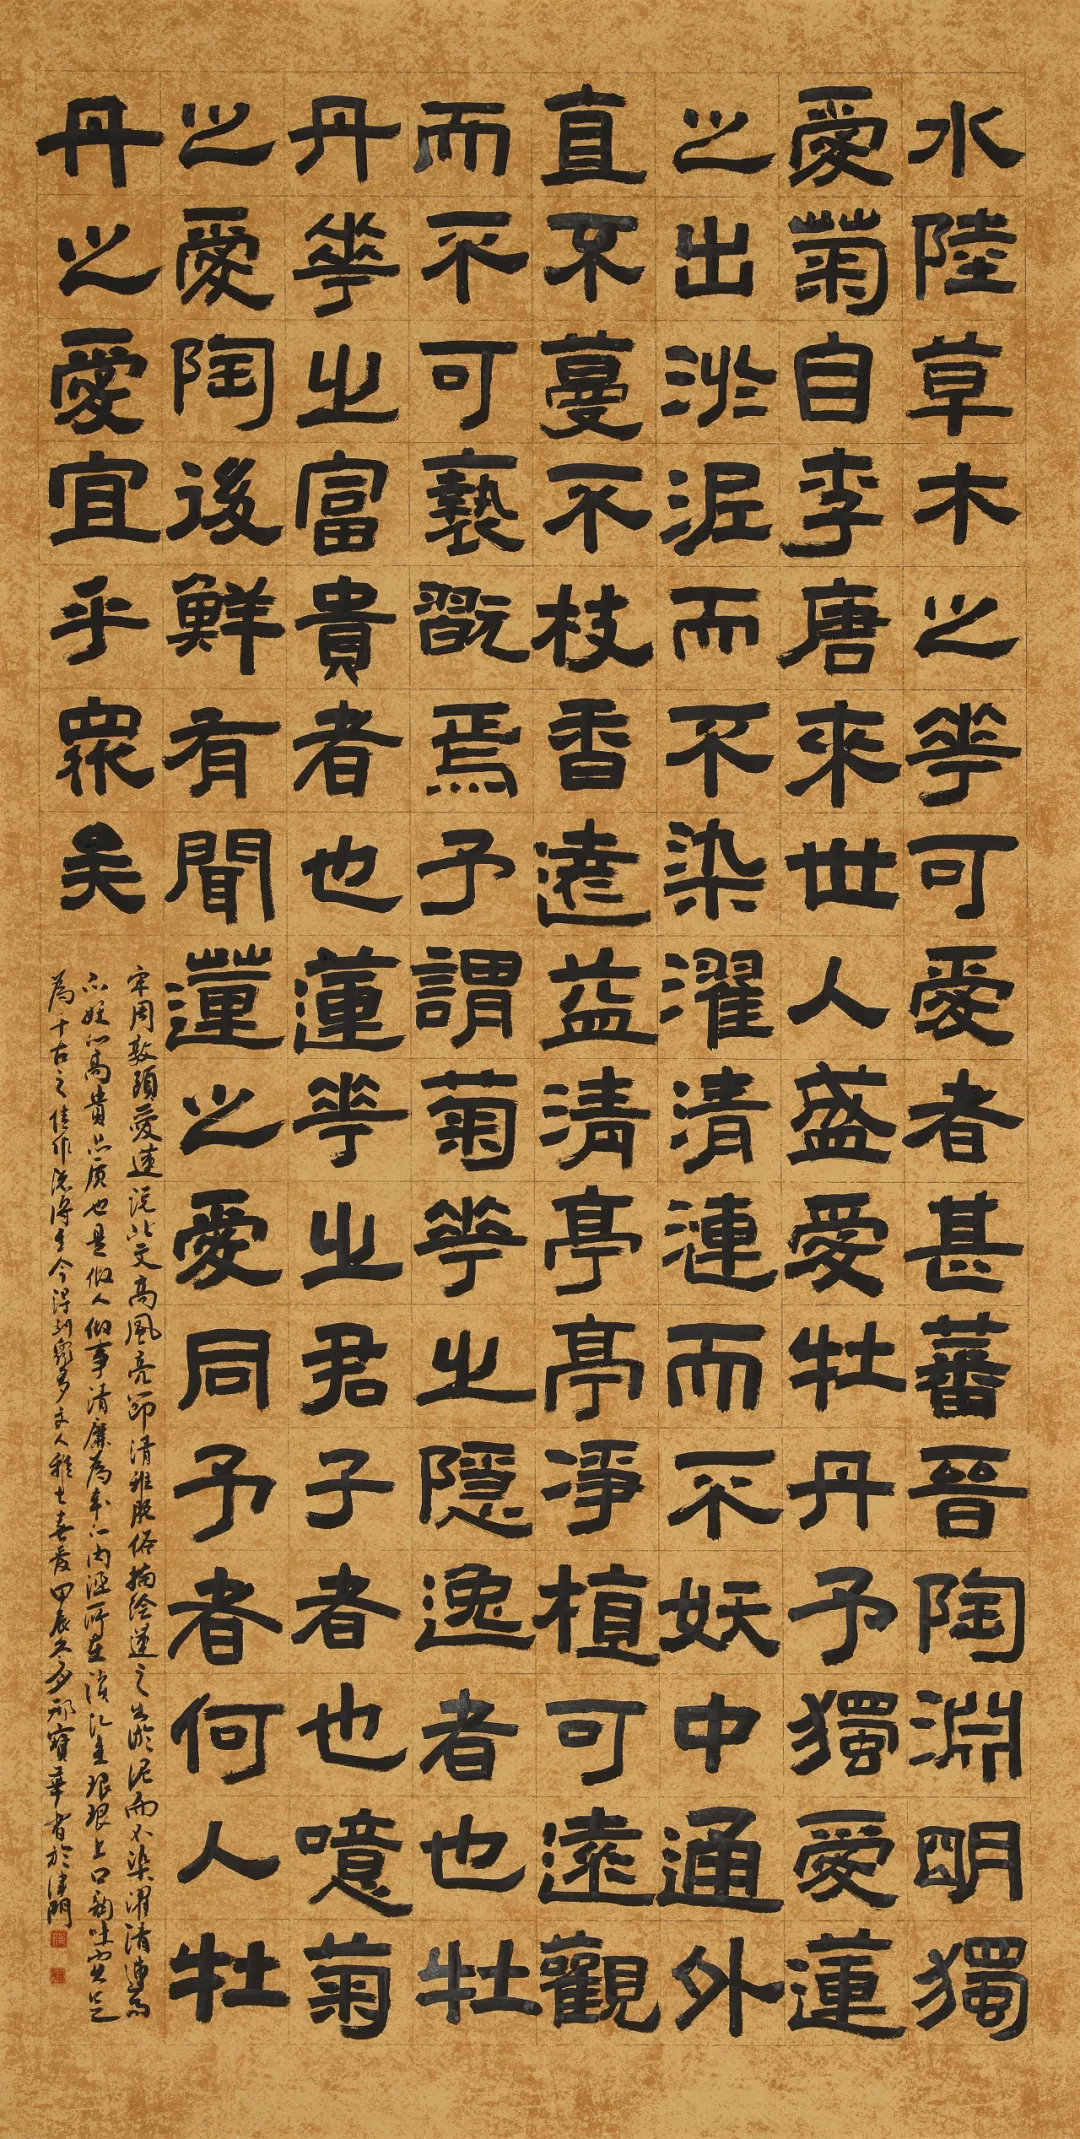 水陸草木之華可愛者甚蕃晉陶淵明獨
愛菊自李唐來世人盛愛牡丹予獨愛蓮
之出淤泥而不染濯清漣而不妖中通外
直不蔓不枝香遠益清亭亭淨植可遠觀
而不可褻翫焉予謂菊華之隱逸者也牡
丹華之富貴者也蓮華之君子者也噫菊
之愛陶後鮮有聞蓮之愛同予者何人牡
丹之愛宜乎眾矣
宋周敦頤愛蓮說此文高風亮節清雅脫俗描繪蓮之出淤泥而不染濯清漣而
不妖的高貴品质也是做人做事清廉為本的內涵所在琅琅上口韵味足
為千古之佳作流傳至今得到眾多文人雅士喜愛甲辰冬月祁寶華書於津門